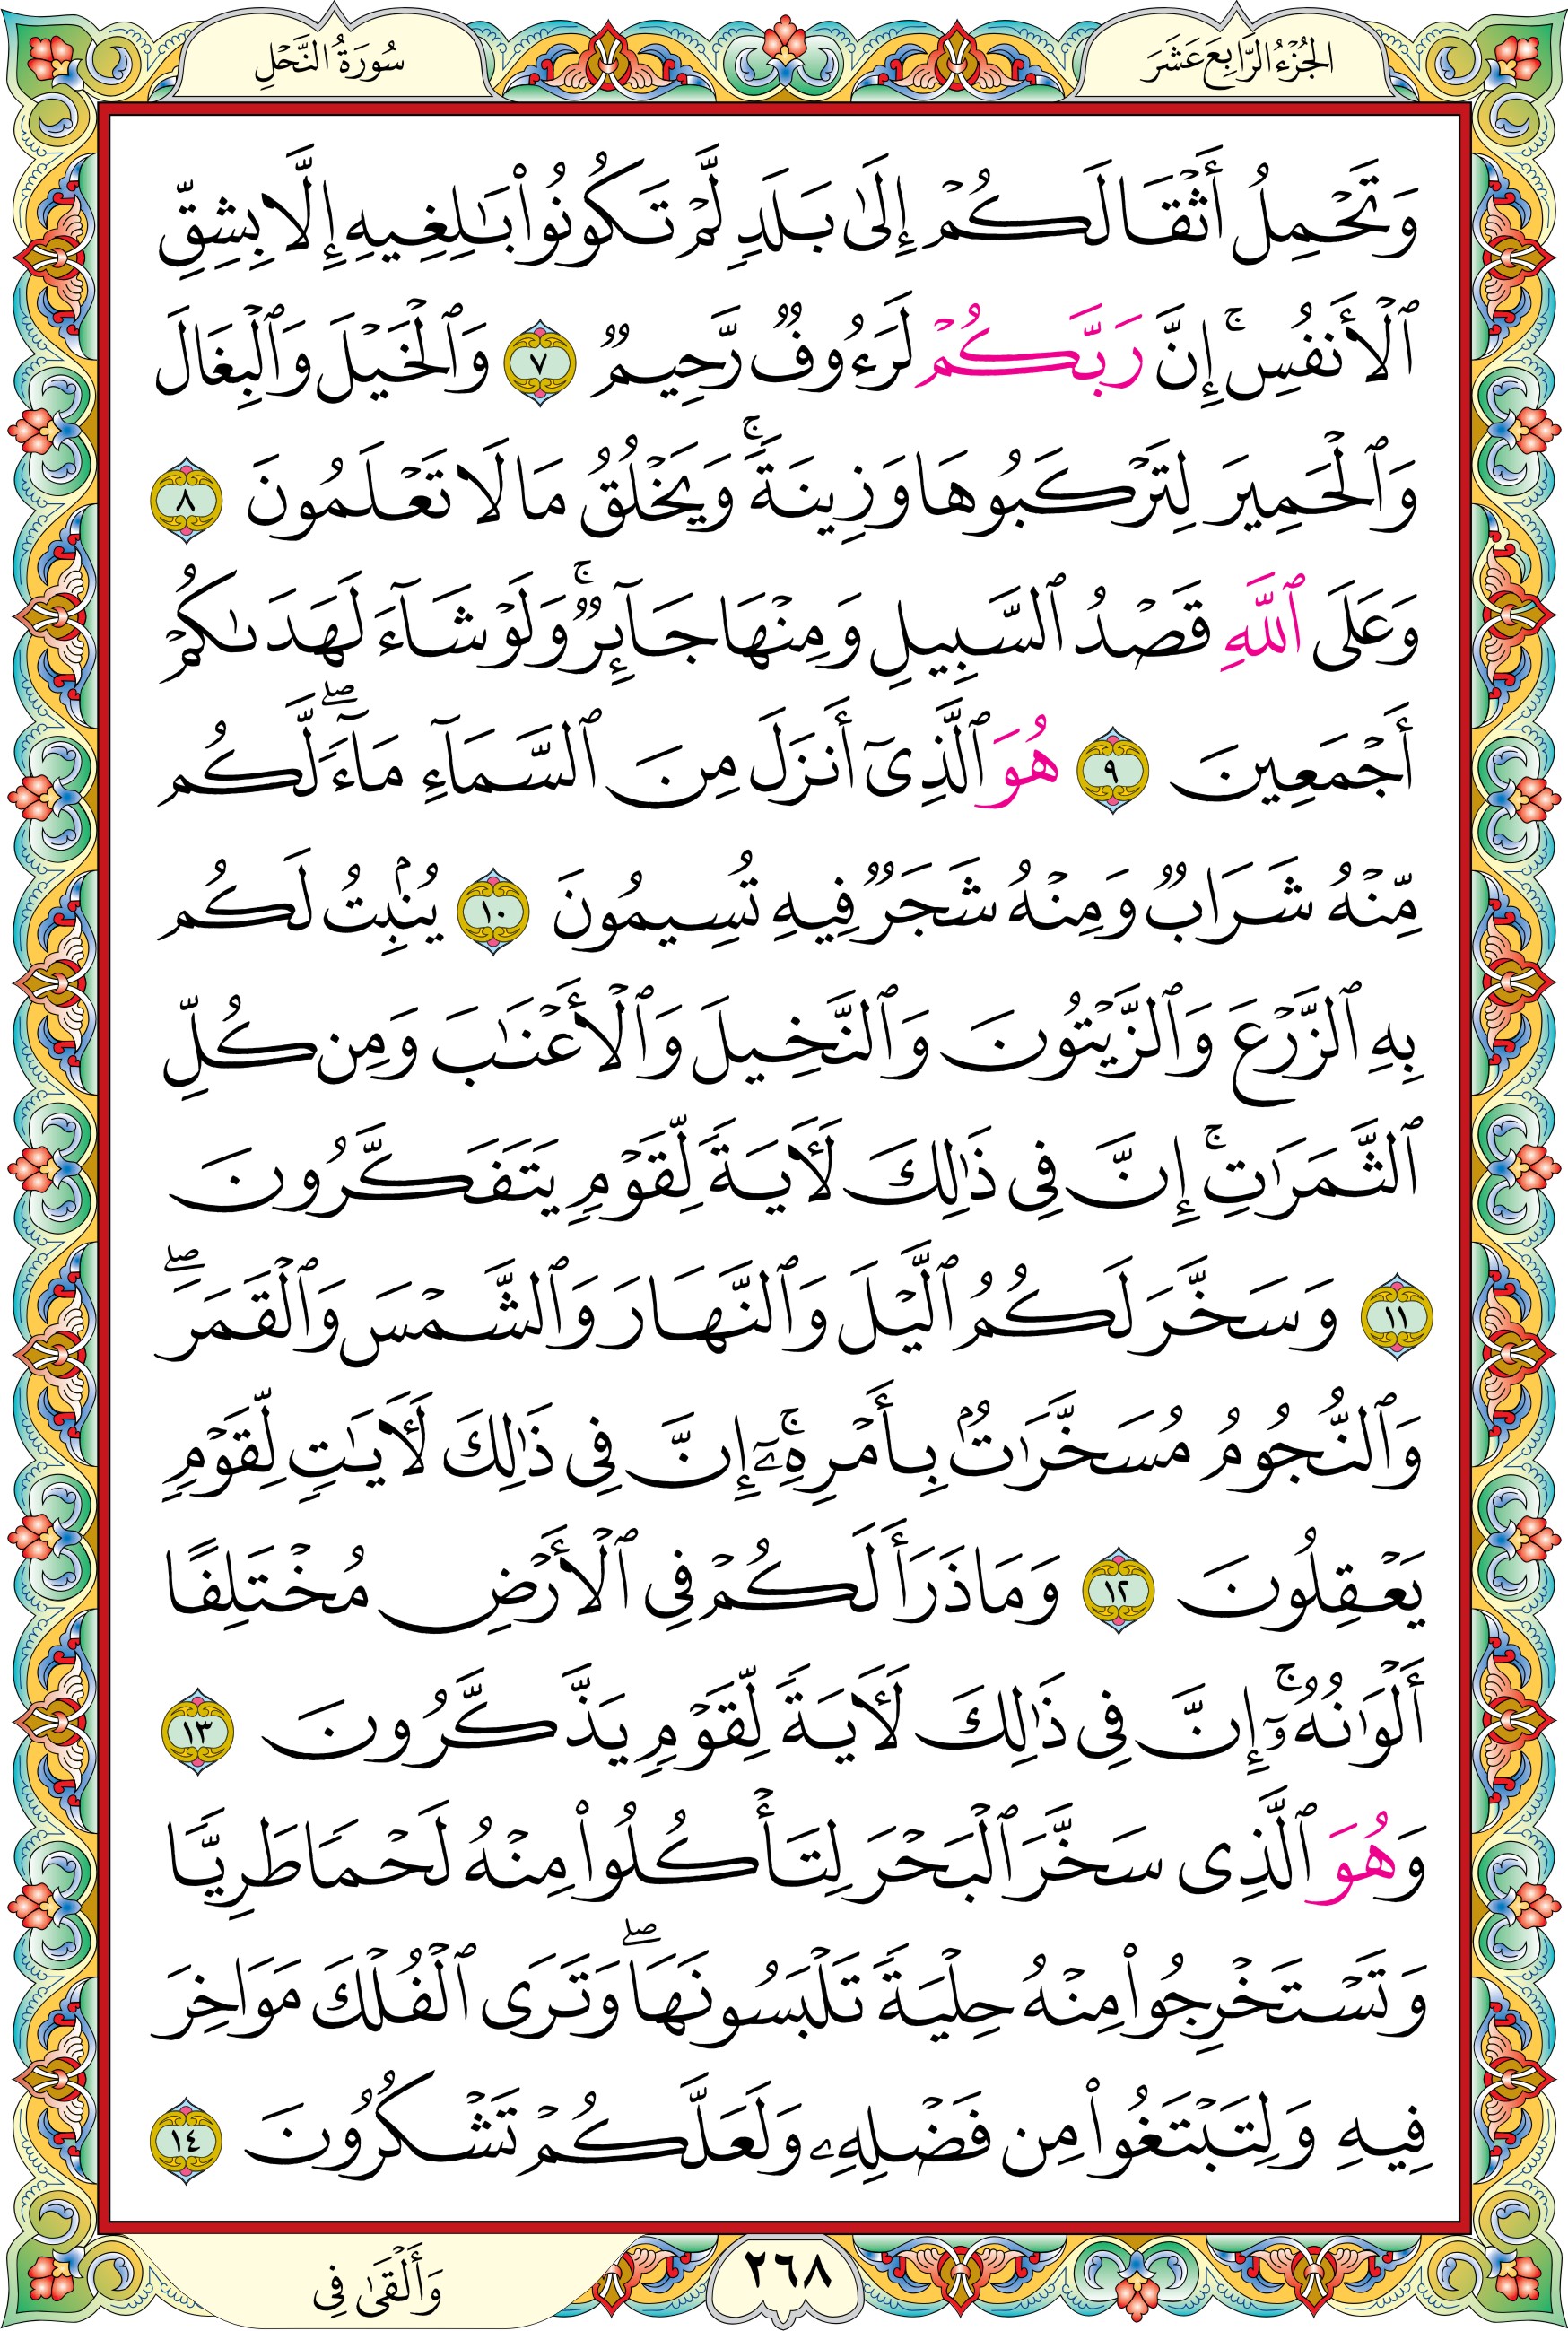 الجُزْءُ الرَّابِعَ عَشَرَ
سُورَةُ النَّحْلِ
وَتَحْمِلُ أَثْقَالَكُمْ إِلَىٰ بَلَدٍ لَّمْ تَكُونُوا۟ بَٰلِغِيهِ إِلَّا بِشِقِّ
ٱلْأَنفُسِ ۚ إِنَّ رَبَّكُمْ لَرَءُوفٌ رَّحِيمٌ ٧ وَٱلْخَيْلَ وَٱلْبِغَالَ
وَٱلْحَمِيرَ لِتَرْكَبُوهَا وَزِينَةً ۚ وَيَخْلُقُ مَا لَا تَعْلَمُونَ ٨
وَعَلَى ٱللَّهِ قَصْدُ ٱلسَّبِيلِ وَمِنْهَا جَآئِرٌ ۚ وَلَوْ شَآءَ لَهَدَىٰكُمْ
أَجْمَعِينَ ٩ هُوَ ٱلَّذِىٓ أَنزَلَ مِنَ ٱلسَّمَآءِ مَآءً ۖ لَّكُم
مِّنْهُ شَرَابٌ وَمِنْهُ شَجَرٌ فِيهِ تُسِيمُونَ ١٠ يُنۢبِتُ لَكُم
بِهِ ٱلزَّرْعَ وَٱلزَّيْتُونَ وَٱلنَّخِيلَ وَٱلْأَعْنَٰبَ وَمِن كُلِّ
ٱلثَّمَرَٰتِ ۗ إِنَّ فِى ذَٰلِكَ لَءَايَةً لِّقَوْمٍ يَتَفَكَّرُونَ
١١ وَسَخَّرَ لَكُمُ ٱلَّيْلَ وَٱلنَّهَارَ وَٱلشَّمْسَ وَٱلْقَمَرَ ۖ
وَٱلنُّجُومُ مُسَخَّرَٰتٌۢ بِأَمْرِهِۦٓ ۗ إِنَّ فِى ذَٰلِكَ لَءَايَٰتٍ لِّقَوْمٍ
يَعْقِلُونَ ١٢ وَمَا ذَرَأَ لَكُمْ فِى ٱلْأَرْضِ مُخْتَلِفًا
أَلْوَٰنُهُۥٓ ۗ إِنَّ فِى ذَٰلِكَ لَءَايَةً لِّقَوْمٍ يَذَّكَّرُونَ ١٣
وَهُوَ ٱلَّذِى سَخَّرَ ٱلْبَحْرَ لِتَأْكُلُوا۟ مِنْهُ لَحْمًا طَرِيًّا
وَتَسْتَخْرِجُوا۟ مِنْهُ حِلْيَةً تَلْبَسُونَهَا ۖ وَتَرَى ٱلْفُلْكَ مَوَاخِرَ
فِيهِ وَلِتَبْتَغُوا۟ مِن فَضْلِهِۦ وَلَعَلَّكُمْ تَشْكُرُونَ ١٤
٢٦٨
وَأَلْقَىٰ فِى